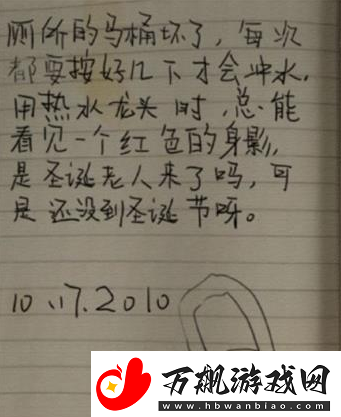 厕所的马桶坏了，每次
都要按好几下才会冲水，
用热水龙头时，总能
看见一个红色的身影，
是圣诞老人来了吗，可
是还没到圣诞节呀。
10.17.2010
万飙游戏网
www.hbwanbiao.com